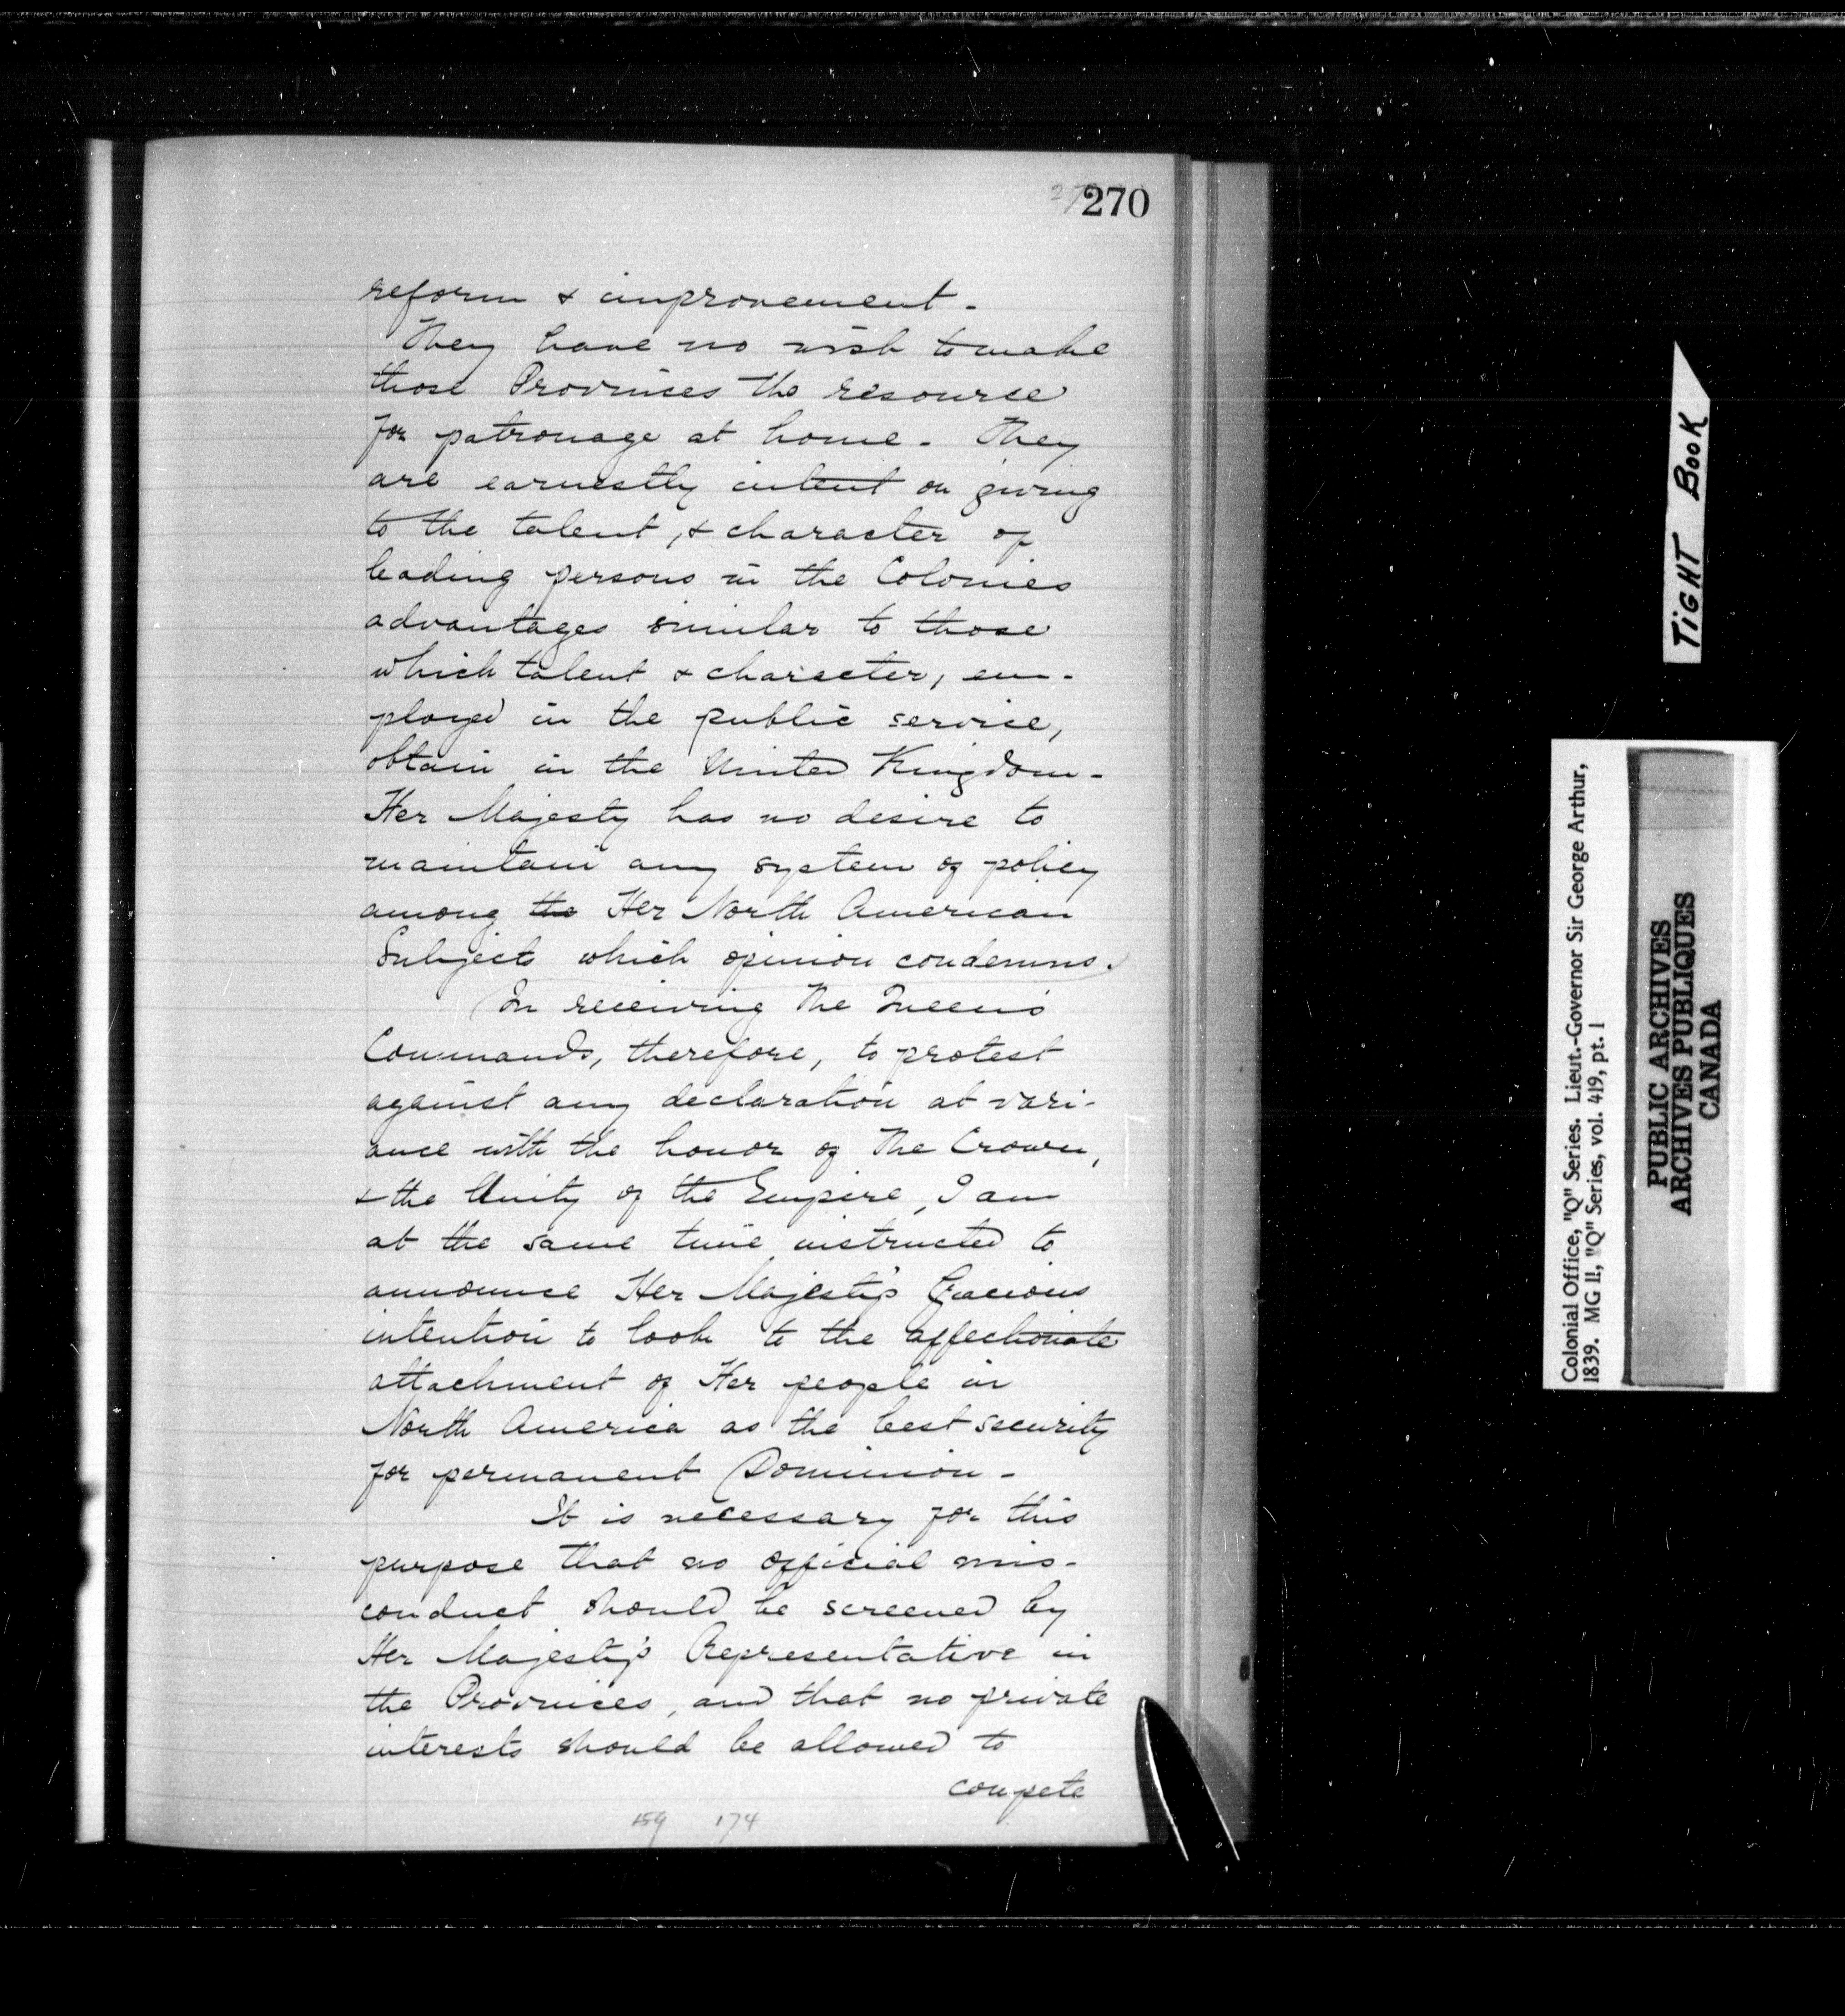 270
reform & improvement.
They have no wish to make
those Provinces the resource
for patronage at home. They
are earnestly intent on giving
to the talent, & character of
leading persons in the Colonies
advantages similar to those
which talent & character, em-
ployed in the public service,
obtain in the United Kingdom.
Her Majesty has no desire to
maintain any system of policy
among the Her North American
Subjects which opinion condemns.
In receiving The Queen's
Commands, therefore, to protest
against any declaration at vari-
ance with the honor of The Crown,
& the Unity of the Empire, I am
at the same time instructed to
announce Her Majesty's Gracious
intention to look to the affectionate
attachment of Her people in
North America as the best security
for permanent Dominion.
It is necessary for this
purpose that no official mis-
conduct should be screened by
Her Majesty's Representative in
the Provinces, and that no private
interests should be allowed to
compete
159 174
TIGHT BOOK
Colonial Office, "Q" Series. Lieut.-Governor Sir George Arthur,
1839. MG 11, "Q" Series, vol. 419, pt. 1
PUBLIC ARCHIVES
ARCHIVES PUBLIQUES
CANADA